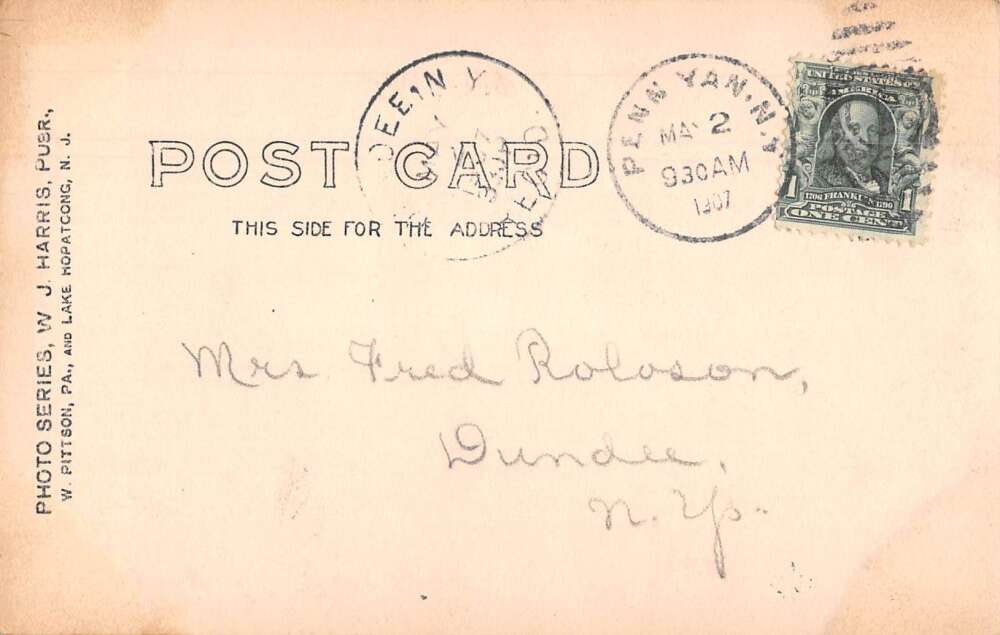 PHOTO SERIES, W. J. HARRIS, PUBR.,
W. PITTSON, PA., AND LAKE HOPATCONG, N. J.
POST CARD
THIS SIDE FOR THE ADDRESS
DEE, N.Y.
PENN YAN, N.Y.
MAY 2
930AM
1907
UNITED STATES OF
AMERICA
1706 FRANKLIN 1790
POSTAGE
1 ONE CENT 1
Mrs Fred Roloson,
Dundee,
N. Y.